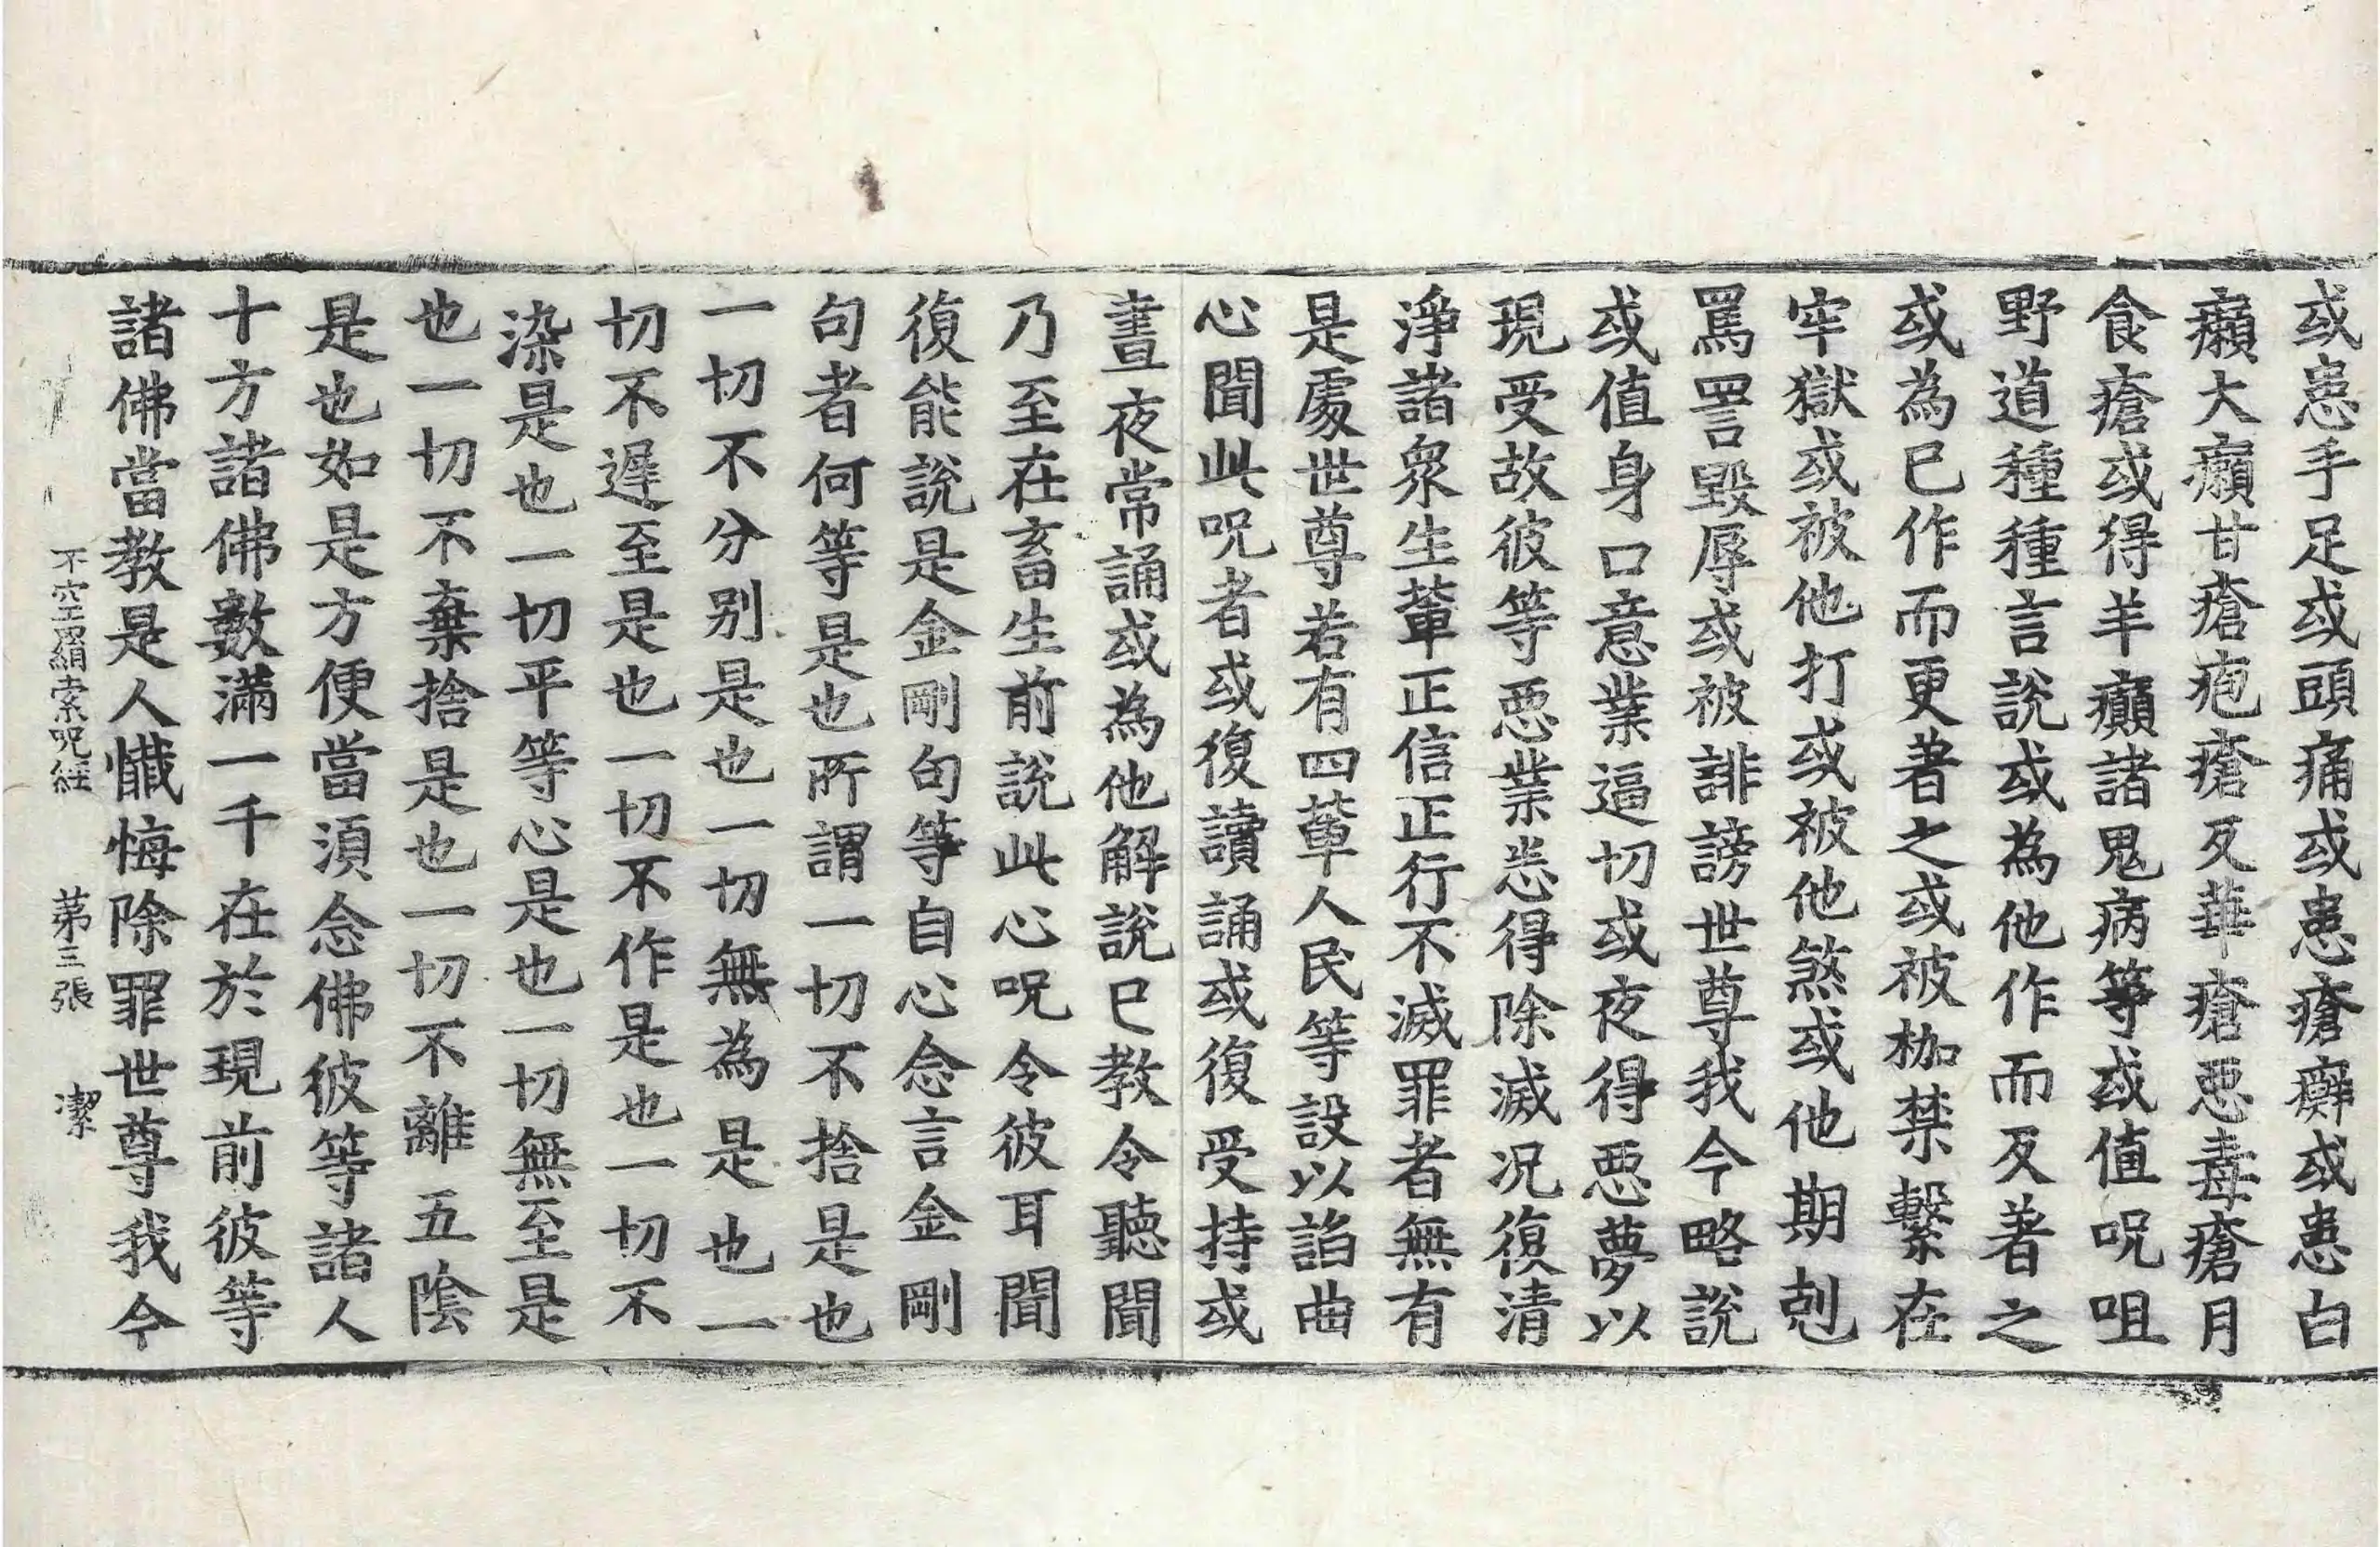 或患手足或頭痛或患瘡癬或患白
癩大癩甘瘡疱瘡及華瘡惡毒瘡月
食瘡或得羊癲諸鬼病等或值呪咀
野道種種言說或為他作而及著之
或為已作而更著之或被枷禁繫在
牢獄或被他打或被他煞或他期剋
罵詈毀辱或被誹謗世尊我今略說
或值身口意業逼切或夜得惡夢以
現受故彼等惡業悉得除滅况復清
淨諸眾生輩正信正行不滅罪者無有
是處世尊若有四輩人民等設以諂曲
心聞此呪者或復讀誦或復受持或
晝夜常誦或為他解說已教令聽聞
乃至在畜生前說此心呪令彼耳聞
復能說是金剛句等自心念言金剛
句者何等是也所謂一切不捨是也
一切不分別是也一切無為是也一
切不遲至是也一切不作是也一切不
染是也一切平等心是也一切無至是
也一切不棄捨是也一切不離五陰
是也如是方便當須念佛彼等諸人
十方諸佛數滿一千在於現前彼等
諸佛當教是人懺悔除罪世尊我今
不空羂索呪經　第三張　潔